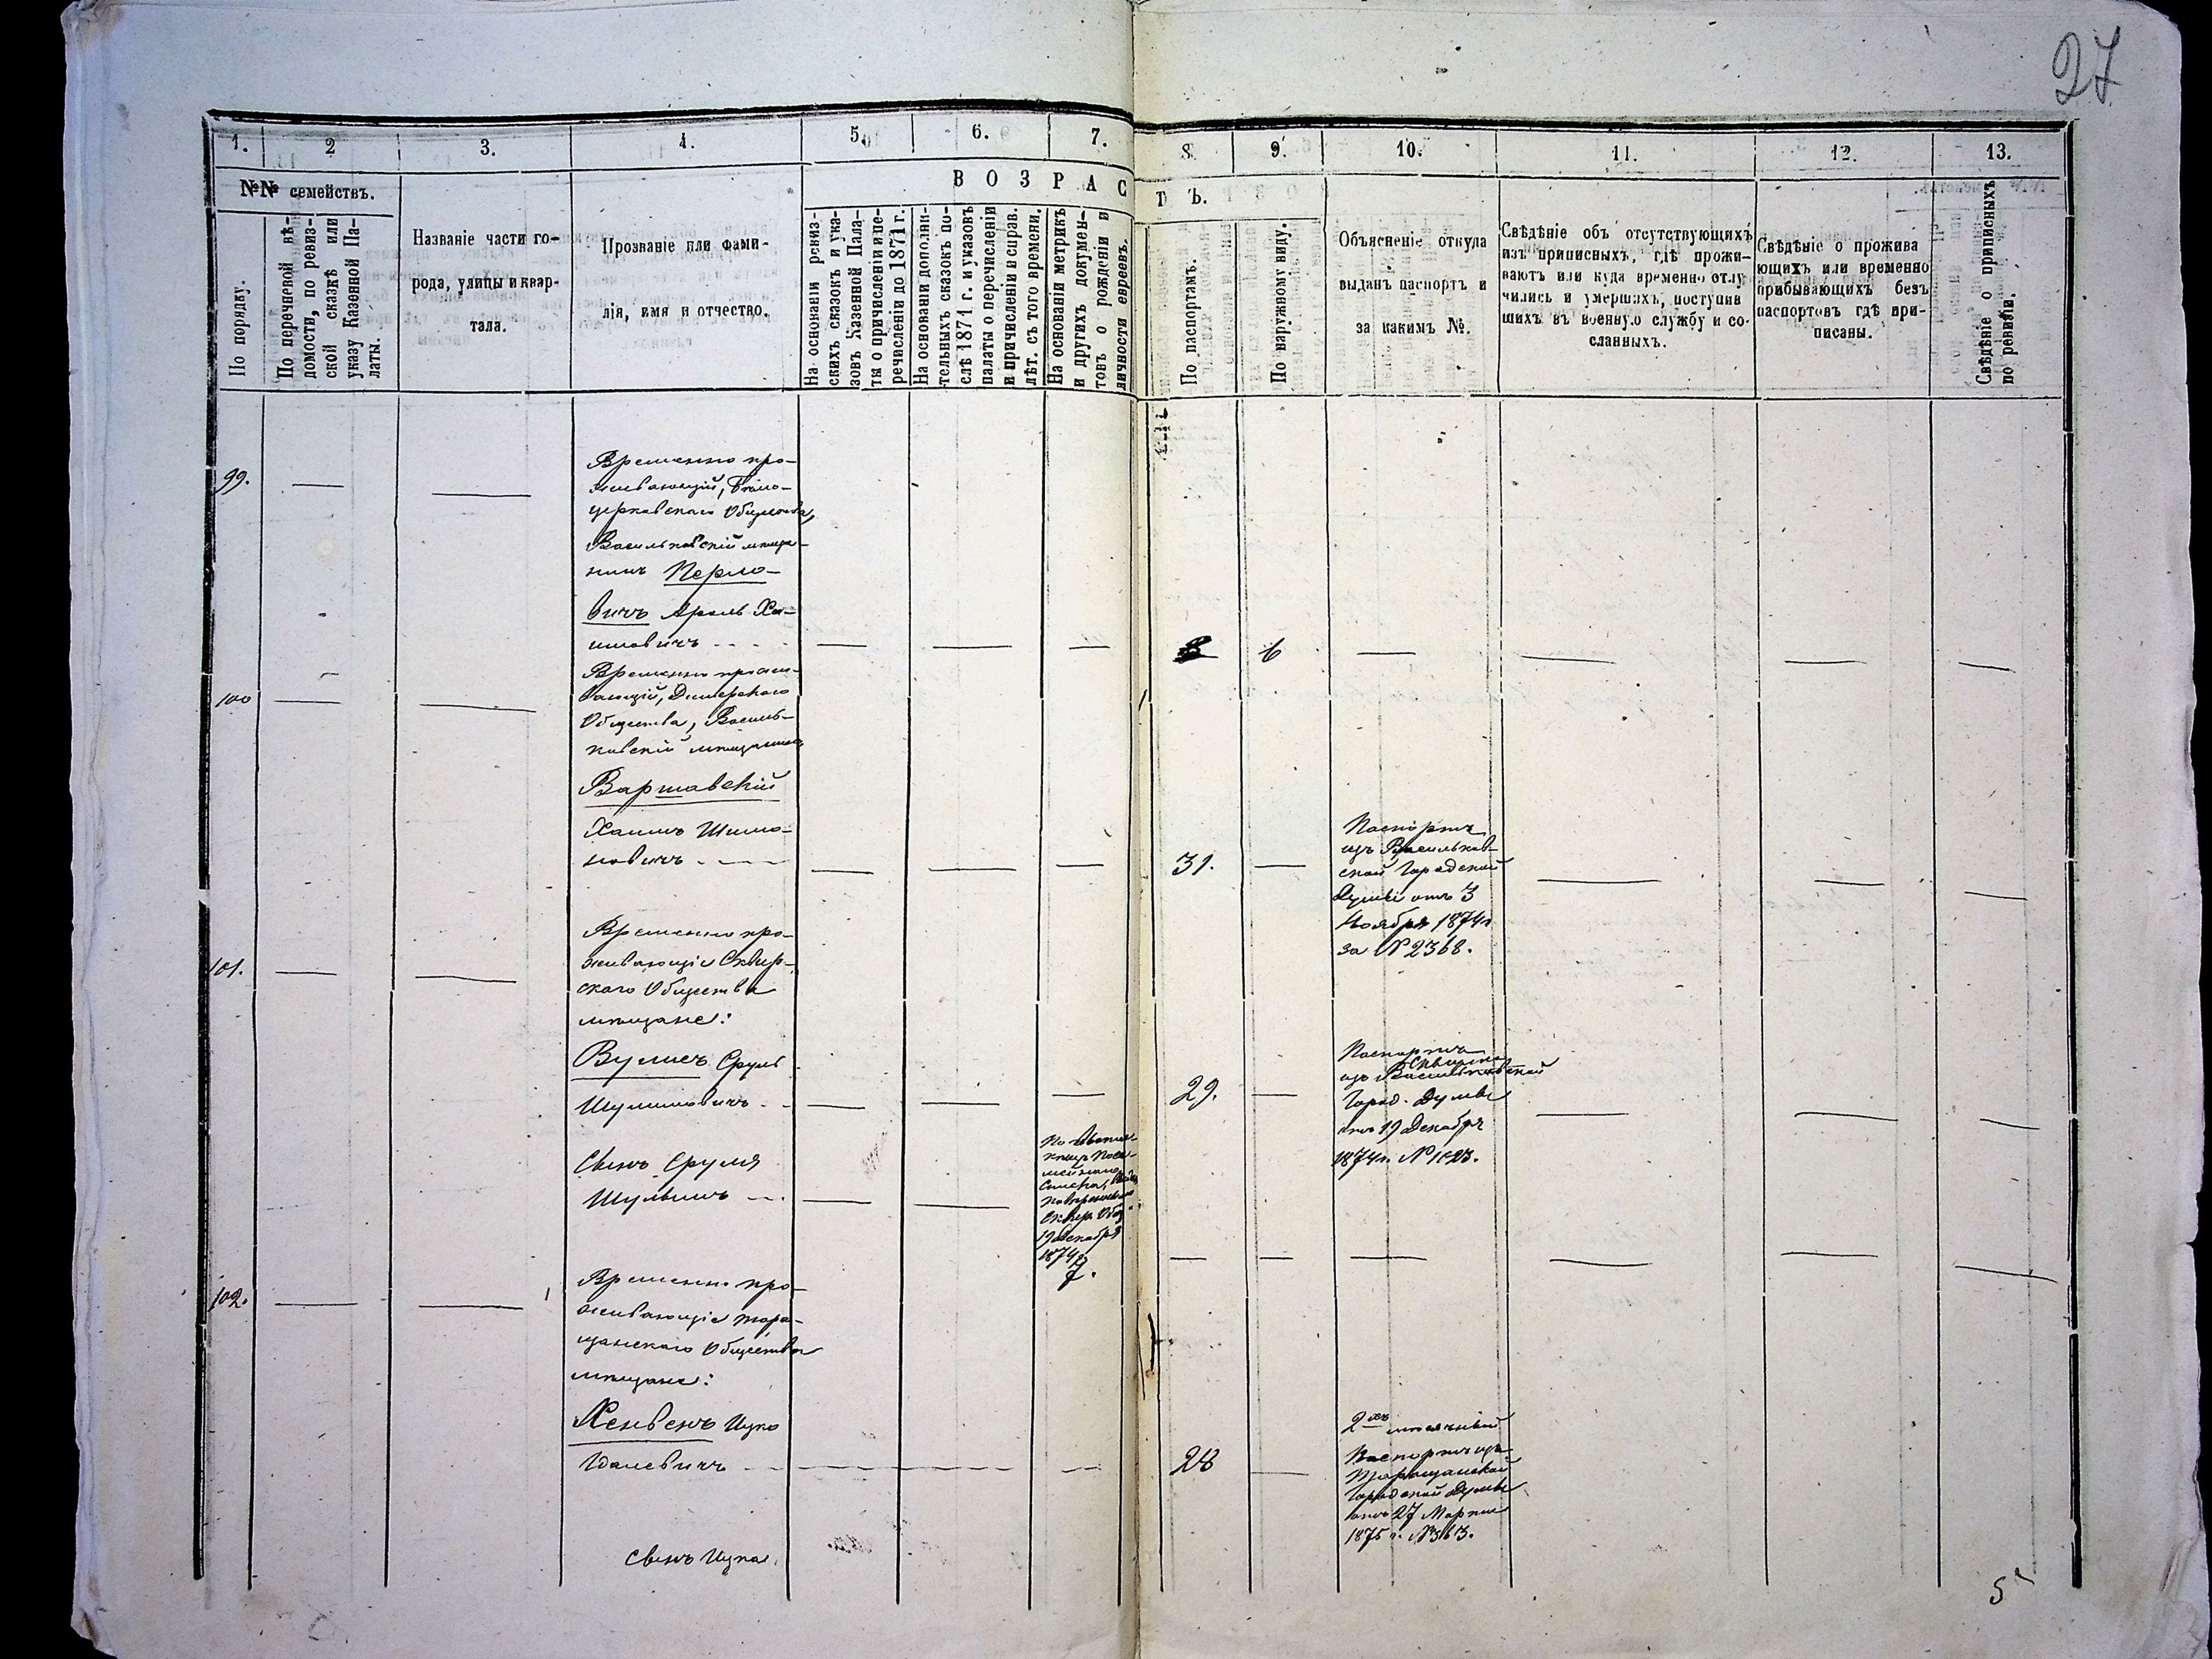 27
1.
2
3.
4.
5.
6.
7.
8.
9.
10.
11.
12.
13.
№№ семействъ.
В О З Р А С
Т Ъ.
По порядку.
По перечневой вѣ-
домости, по ревиз-
ской сказкѣ или
указу Казенной Па-
латы.
Названіе части го-
рода, улицы и квар-
тала.
Прозваніе или фами-
лія, имя и отчество.
На основаніи ревиз-
скихъ сказокъ и ука-
зовъ Казенной Пала-
ты о причисленіи и пе-
речисленіи до 1871 г.
На основаніи дополни-
тельныхъ сказокъ по-
слѣ 1871 г. и указовъ
палаты о перечисленіи
и причисленіи и справ.
лѣт. съ того времени.
На основаніи метрикъ
и другихъ докумен-
товъ о рожденіи и
личности евреевъ.
По паспортамъ.
По наружному виду.
Объясненіе откуда
выданъ паспортъ и
за какимъ №.
Свѣдѣніе объ отсутствующихъ
изъ приписныхъ, гдѣ прожи-
ваютъ или куда временно отлу
чились и умершихъ, поступив
шихъ въ военную службу и со-
сланныхъ.
Свѣдѣніе о прожива
ющихъ или временно
прибывающихъ безъ
паспортовъ гдѣ при-
писаны.
Свѣдѣніе о приписныхъ
по ревизіи.
99.
Временно про-
живающій, Бѣло-
церковскаго Общества,
Васильковскій мѣща-
нинъ Перло-
вичъ Арель Ха-
имовичъ
6
100
Временно прожи-
вающій, Димерскаго
Общества, Василь-
ковскій мѣщанинъ
Варшавскій
Хаимъ Шимо-
новичъ
31.
Паспортъ
изъ Васильков-
ской Городской
Думы отъ 3
Ноября 1874 г
за № 2368.
101.
Временно про-
живающіе Сквир-
скаго Общества
мѣщане:
Вулисъ Сруль
Шулимовичъ
29.
Паспортъ
Сквирской
изъ Васильковской
Город. Думы
отъ 19 Декабря
1874 г. №
Сынъ Сруля
Шулимъ
Списка,
Сквир. Общ.
19 Декабря
1874 г
7.
102.
Временно про-
живающіе Тара-
щанскаго Общества
мѣщане:
Хенвенъ Ицко
Идалевичъ
28
2хъ мѣсячный
Паспортъ изъ
Таращанской
Городской Думы
отъ 27 Марта
1875 г. № 363.
сынъ Ицка